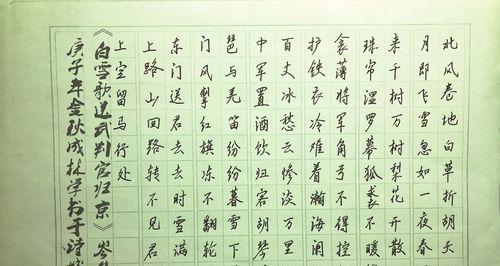 北风卷地白草折胡天
月即飞雪忽如一夜春
来千树万树梨花开散
珠帘湿罗幕狐裘不暖
衾薄将军角弓不得控
护铁衣冷难着瀚海阑
百丈冰愁云惨淡万里
中军置酒饮归客胡琴
琶与羌笛纷纷暮雪下
门风掣红旗冻不翻轮
东门送君去去时雪满
上路山回路转不见君
上空留马行处
《白雪歌送武判官归京》岑
庚子年金秋成林学书于诗